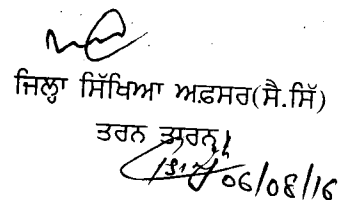 ਜਿਲ੍ਹਾ ਸਿੱਖਿਆ ਅਫ਼ਸਰ(ਸੈ.ਸਿੱ)
ਤਰਨ ਤਾਰਨ
06/08/16